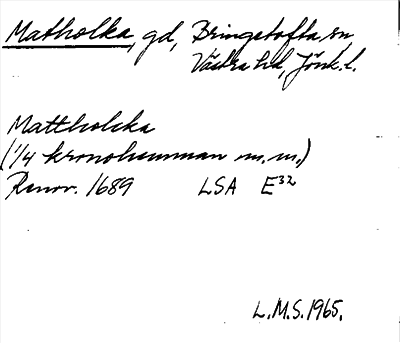 Matholka, gd, Bringetofta sn
Västra hd, Jönk. l.
Mattholcka
(1/4 kronohemman m.m.)
Renov. 1689 LSA E32
L.M.S. 1965.